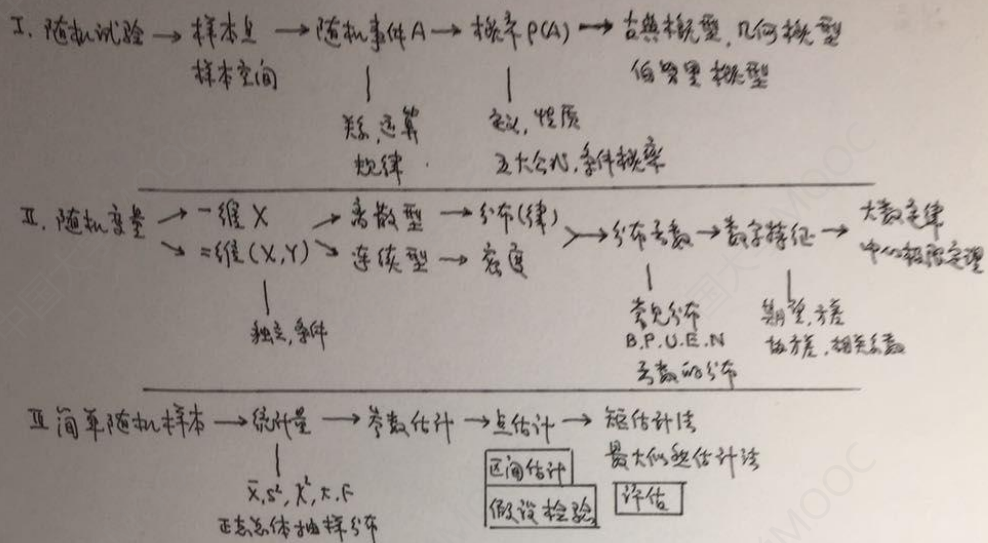 I. 随机试验 → 样本点 → 随机事件A → 概率P(A) → 古典概型, 几何概型
样本空间
伯努里概型
关系, 运算
规律
定义, 性质
五大公式, 条件概率
II. 随机变量 → 一维 X → 离散型 → 分布(律) → 分布函数 → 数字特征 → 大数定律
→ 二维(X,Y) → 连续型 → 密度
中心极限定理
独立, 条件
常见分布
B.P.U.E.N
函数的分布
期望, 方差
协方差, 相关系数
III 简单随机样本 → 统计量 → 参数估计 → 点估计 → 矩估计法
最大似然估计法
区间估计
评估
假设检验
X̄, S², χ², t, F
正态总体抽样分布